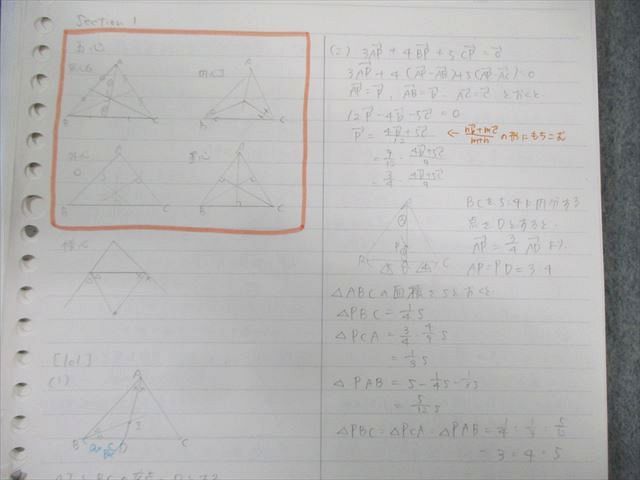 Section 1
五心
重心G
内心I
A
B
C
外心
O
垂心
A
B
C
傍心
[101]
(1)
A
I
B
D
C
(2) 3AP + 4BP + 5CP = 0
3AP + 4(AP-AB)+5(AP-AC)=0
AP=P, AB=b, AC=c とおくと
12P-4b-5c = 0
P = 4b+5c/12 ← nb+mc/m+n の形にもちこむ
= 9/12 · 4b+5c/9
= 3/4 · 4b+5c/9
BCを5:4に内分する
点をDとすると
AP = 3/4 AD より
△ABCの面積をSとおくと
△PBC = 1/4 S
△PCA = 3/4 · 4/9 S
= 1/3 S
△PAB = S - 1/4 S - 1/3 S
= 5/12 S
△PBC : △PCA : △PAB = 1/4 : 1/3 : 5/12
= 3 : 4 : 5